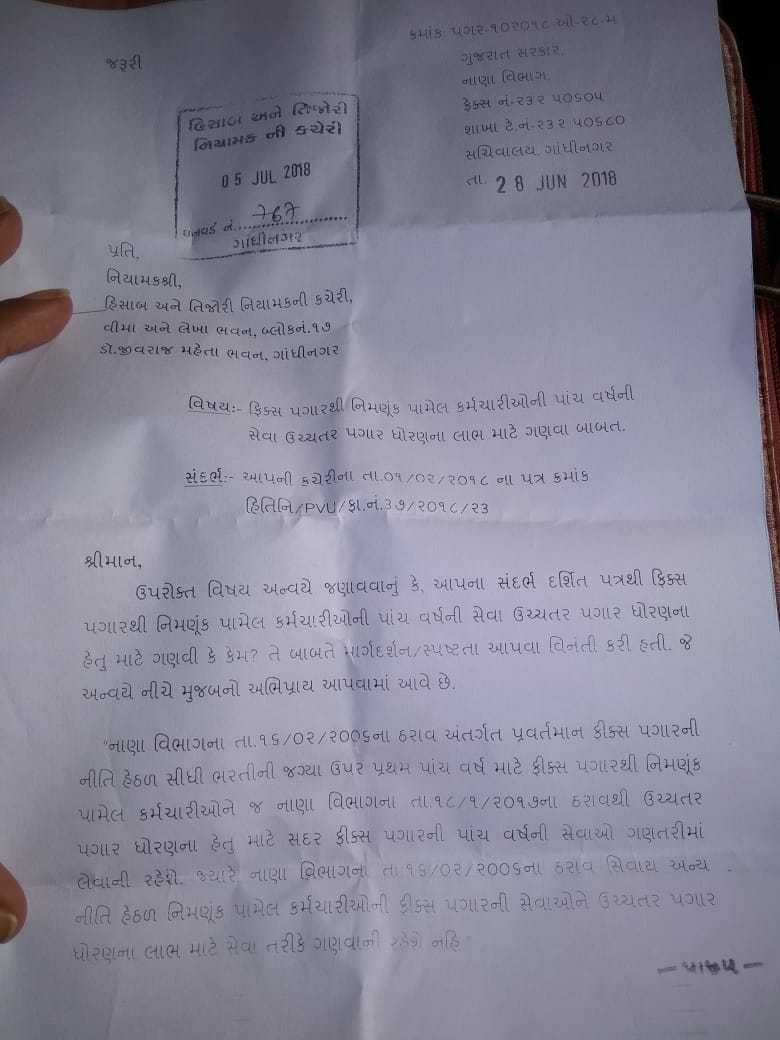 ક્રમાંક: પગર-૧૦૨૦૧૮-ઓ-૨૮-મ
ગુજરાત સરકાર,
નાણા વિભાગ,
ફેક્સ નં-૨૩૨ ૫૦૬૦૫
શાખા ટે.નં-૨૩૨ ૫૦૬૮૦
સચિવાલય, ગાંધીનગર
તા. 28 JUN 2018
જરૂરી
હિસાબ અને તિજોરી
નિયામક ની કચેરી
05 JUL 2018
ઇનવર્ડ નં. 767
ગાંધીનગર
પ્રતિ,
નિયામકશ્રી,
હિસાબ અને તિજોરી નિયામકની કચેરી,
વીમા અને લેખા ભવન, બ્લોકનં.૧૭
ડૉ.જીવરાજ મહેતા ભવન, ગાંધીનગર
વિષય:- ફિક્સ પગારથી નિમણૂંક પામેલ કર્મચારીઓની પાંચ વર્ષની
સેવા ઉચ્ચતર પગાર ધોરણના લાભ માટે ગણવા બાબત.
સંદર્ભ:- આપની કચેરીના તા.૦૧/૦૨/૨૦૧૮ ના પત્ર ક્રમાંક
હિતિનિ/PVU/ફા.નં.૩૭/૨૦૧૮/૨૩
શ્રીમાન,
ઉપરોક્ત વિષય અન્વયે જણાવવાનું કે, આપના સંદર્ભ દર્શિત પત્રથી ફિક્સ
પગારથી નિમણૂંક પામેલ કર્મચારીઓની પાંચ વર્ષની સેવા ઉચ્ચતર પગાર ધોરણના
હેતુ માટે ગણવી કે કેમ? તે બાબતે માર્ગદર્શન/સ્પષ્ટતા આપવા વિનંતી કરી હતી. જે
અન્વયે નીચે મુજબનો અભિપ્રાય આપવામાં આવે છે.
"નાણા વિભાગના તા.૧૬/૦૨/૨૦૦૬ના ઠરાવ અંતર્ગત પ્રવર્તમાન ફીક્સ પગારની
નીતિ હેઠળ સીધી ભરતીની જગ્યા ઉપર પ્રથમ પાંચ વર્ષ માટે ફીક્સ પગારથી નિમણૂંક
પામેલ કર્મચારીઓને જ નાણા વિભાગના તા.૧૮/૧/૨૦૧૭ના ઠરાવથી ઉચ્ચતર
પગાર ધોરણના હેતુ માટે સદર ફીક્સ પગારની પાંચ વર્ષની સેવાઓ ગણતરીમાં
લેવાની રહેશે. જ્યારે નાણા વિભાગના તા.૧૬/૦૨/૨૦૦૬ના ઠરાવ સિવાય અન્ય
નીતિ હેઠળ નિમણૂંક પામેલ કર્મચારીઓની ફીક્સ પગારની સેવાઓને ઉચ્ચતર પગાર
ધોરણના લાભ માટે સેવા તરીકે ગણવાની રહેશે નહિ"